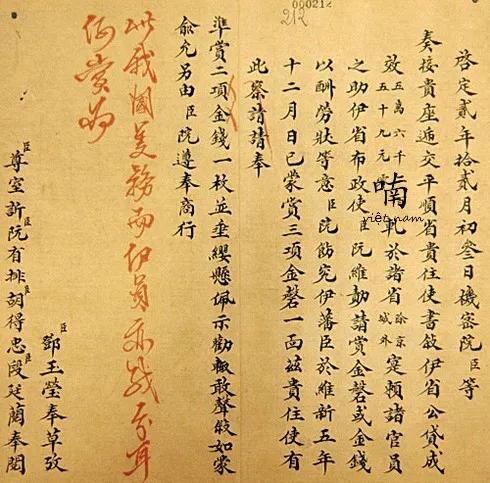 000212
212
啓定貳年拾貳月初叄日機密院臣等
奏接貴座遞交平順省貴住使書敘伊省公貸成
效五萬六千五十九元零軋於諸省除京城外寔賴諸官員
之助伊省布政使臣阮維勛請賞金磬或金錢
以酬勞狀等意臣院飭究伊藩臣於維新五年
十二月日已蒙賞三項金磬一面茲貴住使有
此察請請奉
準賞二項金錢一枚並垂纓懸佩示勸輒敢聲敘如蒙
俞允另由臣院遵奉商行
此我國美務而伊員亦分耳
何賞為
臣鄧玉瑩奉草攷
臣尊室訢臣阮有排臣胡得忠臣段廷蘭奉閱
喃
việt nam